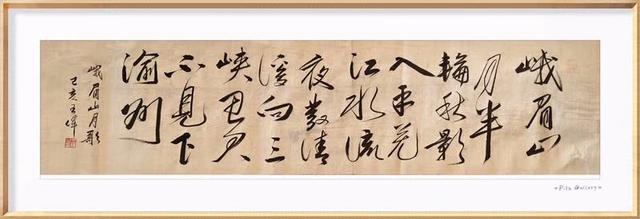 峨眉山
月半
輪秋影
入平羌
江水流
夜發清
溪向三
峡思君
不見下
渝州
峨眉山月歌
己亥王
Gallery